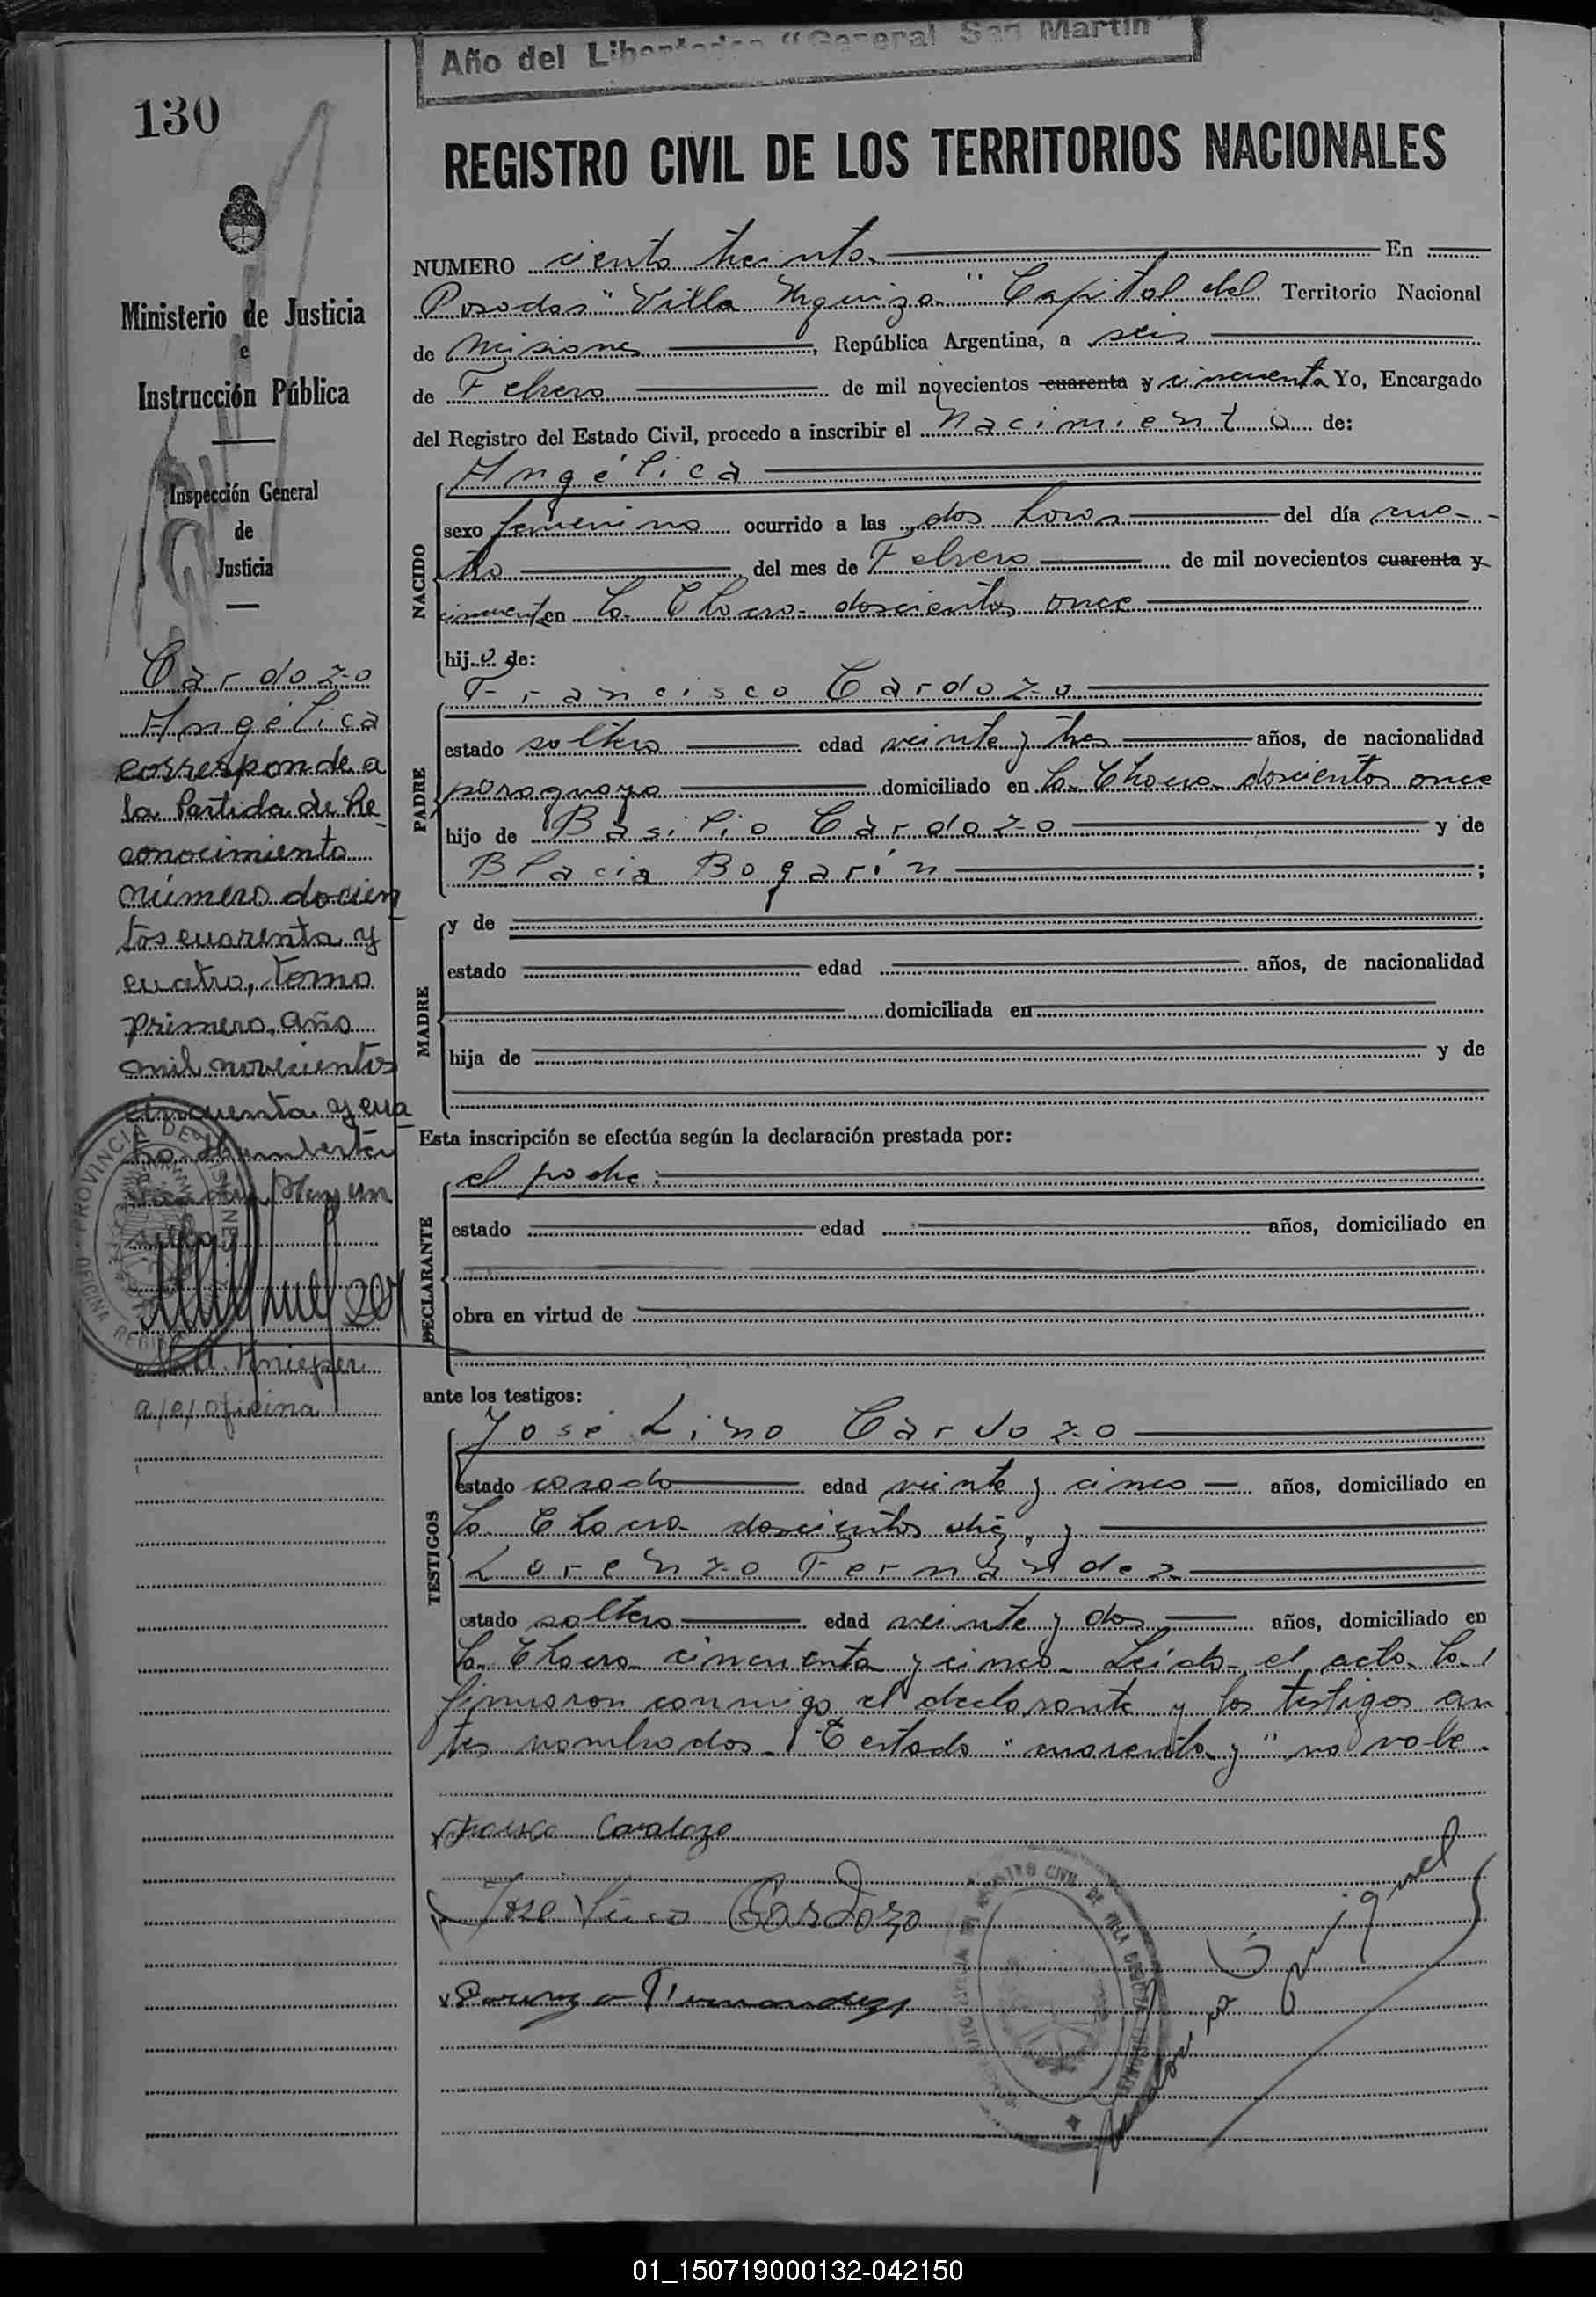 Año del Libertador "General San Martín"
130
REGISTRO CIVIL DE LOS TERRITORIOS NACIONALES
Ministerio de Justicia
e
Instrucción Pública
Inspección General
de
Justicia
Cardozo
Angélica
corresponde a
la Partida de Re
conocimiento
número docien
tos cuarenta y
cuatro, tomo
primero, año
mil novecientos
cinquenta y cua
tro.
PROVINCIA DE MISIONES
OFICINA
Knieper
a/c/oficina
NUMERO ciento treinta. En
Posadas "Villa Urquiza" Capital del Territorio Nacional
de Misiones, República Argentina, a seis
de Febrero de mil novecientos cuarenta y cincuenta Yo, Encargado
del Registro del Estado Civil, procedo a inscribir el Nacimiento de:
NACIDO
Angélica
sexo femenino ocurrido a las dos horas del día cua-
tro del mes de Febrero de mil novecientos cuarenta y
cincuenta en la Chacra doscientos once
hija de:
PADRE
Francisco Cardozo
estado soltero edad veinte y tres años, de nacionalidad
paraguaya domiciliado en la Chacra doscientos once
hijo de Basilio Cardozo y de
Blacia Bogarín ;
MADRE
y de
estado edad años, de nacionalidad
domiciliada en
hija de y de
Esta inscripción se efectúa según la declaración prestada por:
DECLARANTE
el padre:
estado edad años, domiciliado en
obra en virtud de
ante los testigos:
TESTIGOS
José Lino Cardozo
estado casado edad veinte y cinco años, domiciliado en
la Chacra doscientos diez, y
Lorenzo Fernández
estado soltero edad veinte y dos años, domiciliado en
la Chacra cincuenta y cinco. Leída el acta la
firmaron conmigo el declarante y los testigos an
tes nombrados. Testado "cuarenta y" no vale.
Cardozo
Jose Lino Cardozo
Lorenzo Fernandez
01_150719000132-042150